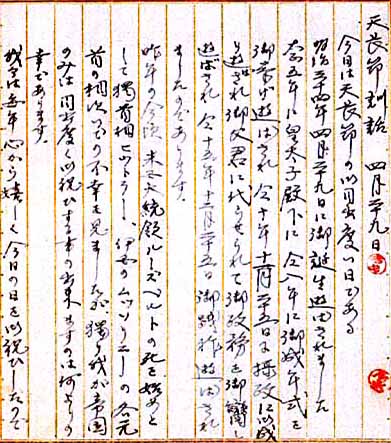 天長節訓話 四月二十九日
今日は天長節の御目出度い日である
明治三十四年四月二十九日に御誕生遊ばされました
大正五年に皇太子殿下に 仝八年に御成年式を
御挙げ遊ばされ 仝十年十一月二十五日に摂政に御成
り遊ばされ御父君に代らせられて御政務を御
遊ばされ 仝十五年十二月二十五日御践祚遊ばされ
ましたのであります。
昨年の今頃 米大統領ルーズベルトの死を始めと
して 独首相ヒットラー 伊のムッソリーニーの 各元
首の相次いでの不幸を見ましたが 独り我が帝国
のみは 目出度く御祝ひする事の出来ますのは何よりの
幸であります。
我々は毎年心から嬉しく今日の日を御祝ひしたので